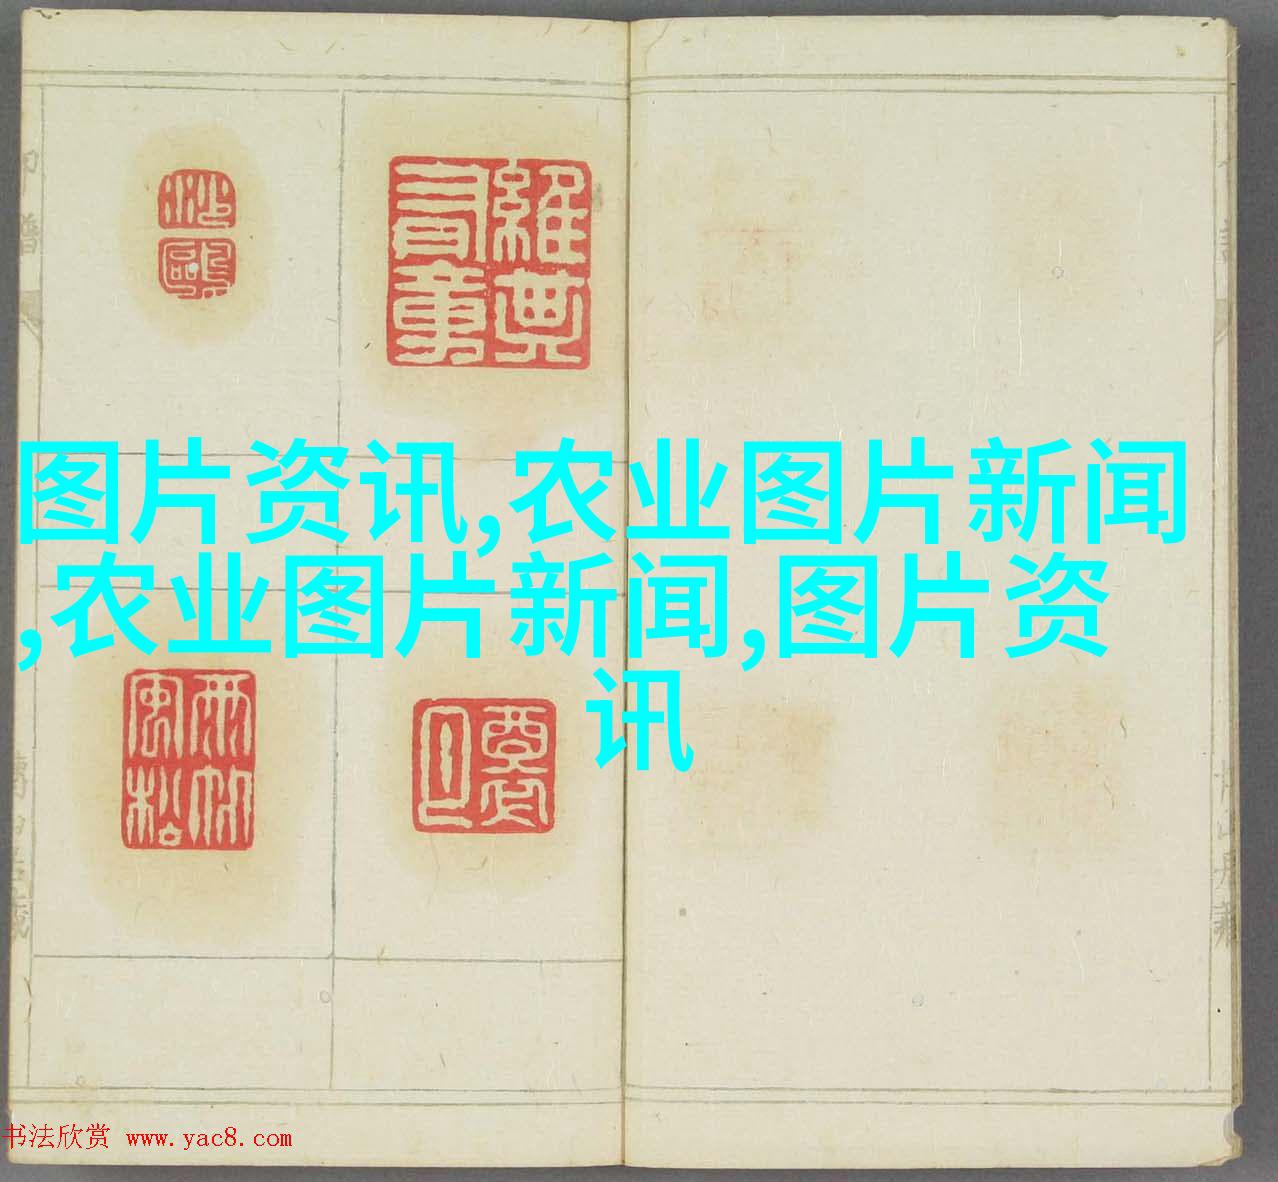 沙鷗
图片资讯,农业图片新闻
,农业图片新闻,图片资
讯
雨竹
風松
书法欣赏 www.yac8.com